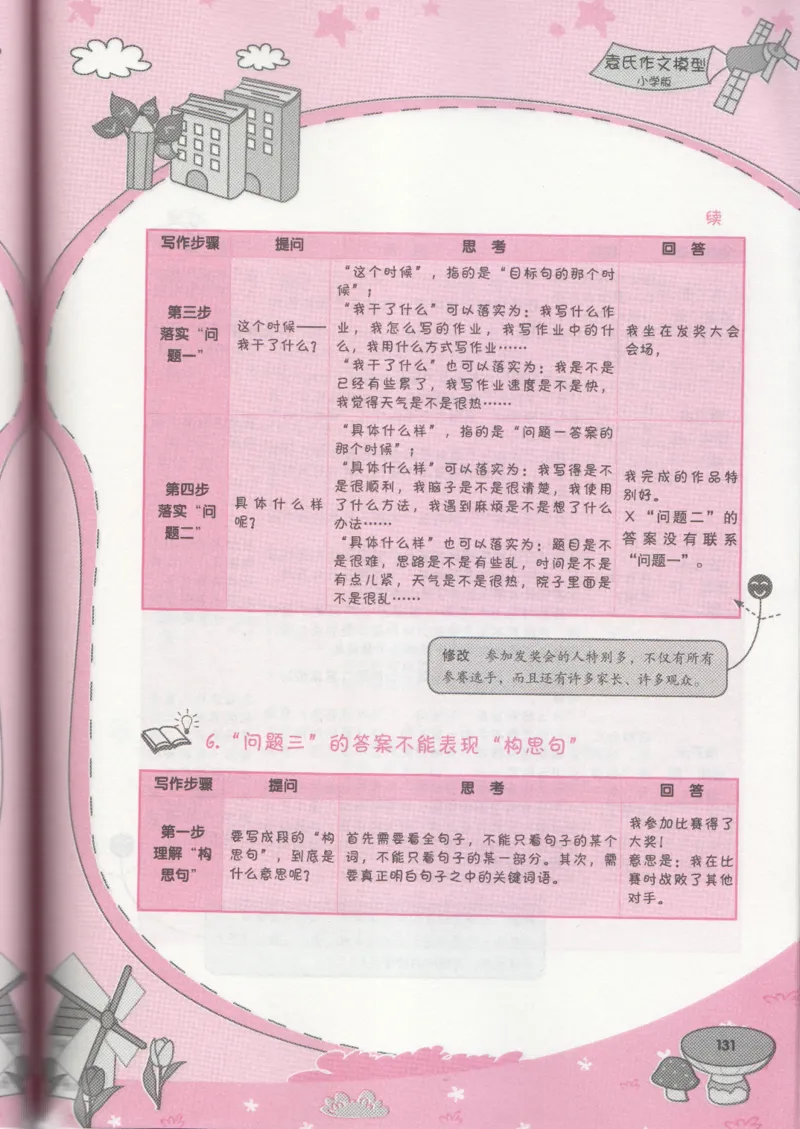 袁氏作文模型
小学版
续
写作步骤 提问 思 考 回 答
第三步
落实“问
题一”
这个时候——
我干了什么？
“这个时候”，指的是“目标句的那个时
候”；
“我干了什么”可以落实为：我写什么作
业，我怎么写的作业，我写作业中的什
么，我用什么方式写作业……
“我干了什么”也可以落实为：我是不是
已经有些累了，我写作业速度是不是快，
我觉得天气是不是很热……
我坐在发奖大会
会场，
第四步
落实“问
题二”
具体什么样
呢？
“具体什么样”，指的是“问题一答案的
那个时候”；
“具体什么样”可以落实为：我写得是不
是很顺利，我脑子是不是很清楚，我使用
了什么方法，我遇到麻烦是不是想了什么
办法……
“具体什么样”也可以落实为：题目是不
是很难，思路是不是有些乱，时间是不是
有点儿紧，天气是不是很热，院子里面是
不是很乱……
我完成的作品特
别好。
X “问题二”的
答案没有联系
“问题一”。
修改 参加发奖会的人特别多，不仅有所有
参赛选手，而且还有许多家长、许多观众。
6.“问题三”的答案不能表现“构思句”
写作步骤 提问 思 考 回 答
第一步
理解“构
思句”
要写成段的“构
思句”，到底是
什么意思呢？
首先需要看全句子，不能只看句子的某个
词，不能只看句子的某一部分。其次，需
要真正明白句子之中的关键词语。
我参加比赛得了
大奖！
意思是：我在比
赛时战败了其他
对手。
131